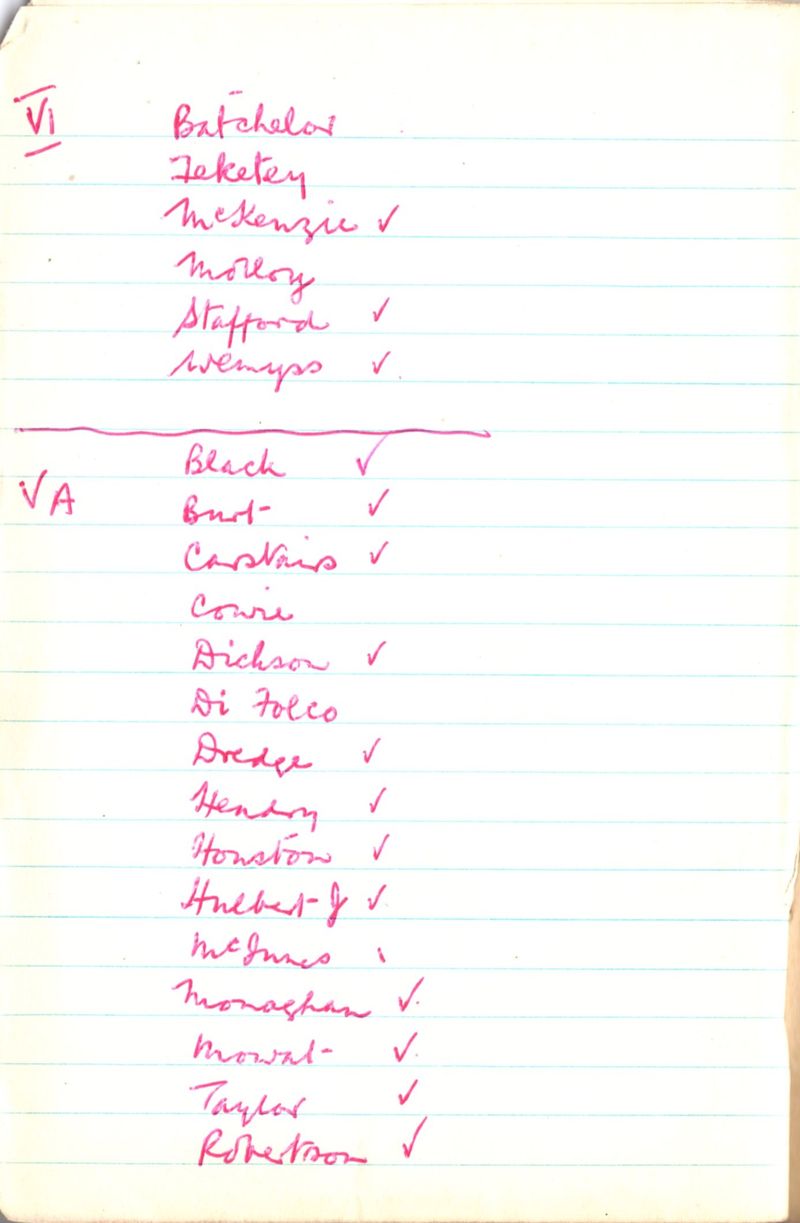 VI Batchelor
Feketey
McKenzie ✓
Molloy
Stafford ✓
Wemyss ✓
Black ✓
VA Burt ✓
Carstairs ✓
Cowie
Dickson ✓
Di Folco
Dredge ✓
Hendry ✓
Houston ✓
Hulbert J ✓
McInnes
Monaghan ✓
Mowat ✓
Taylor ✓
Robertson ✓